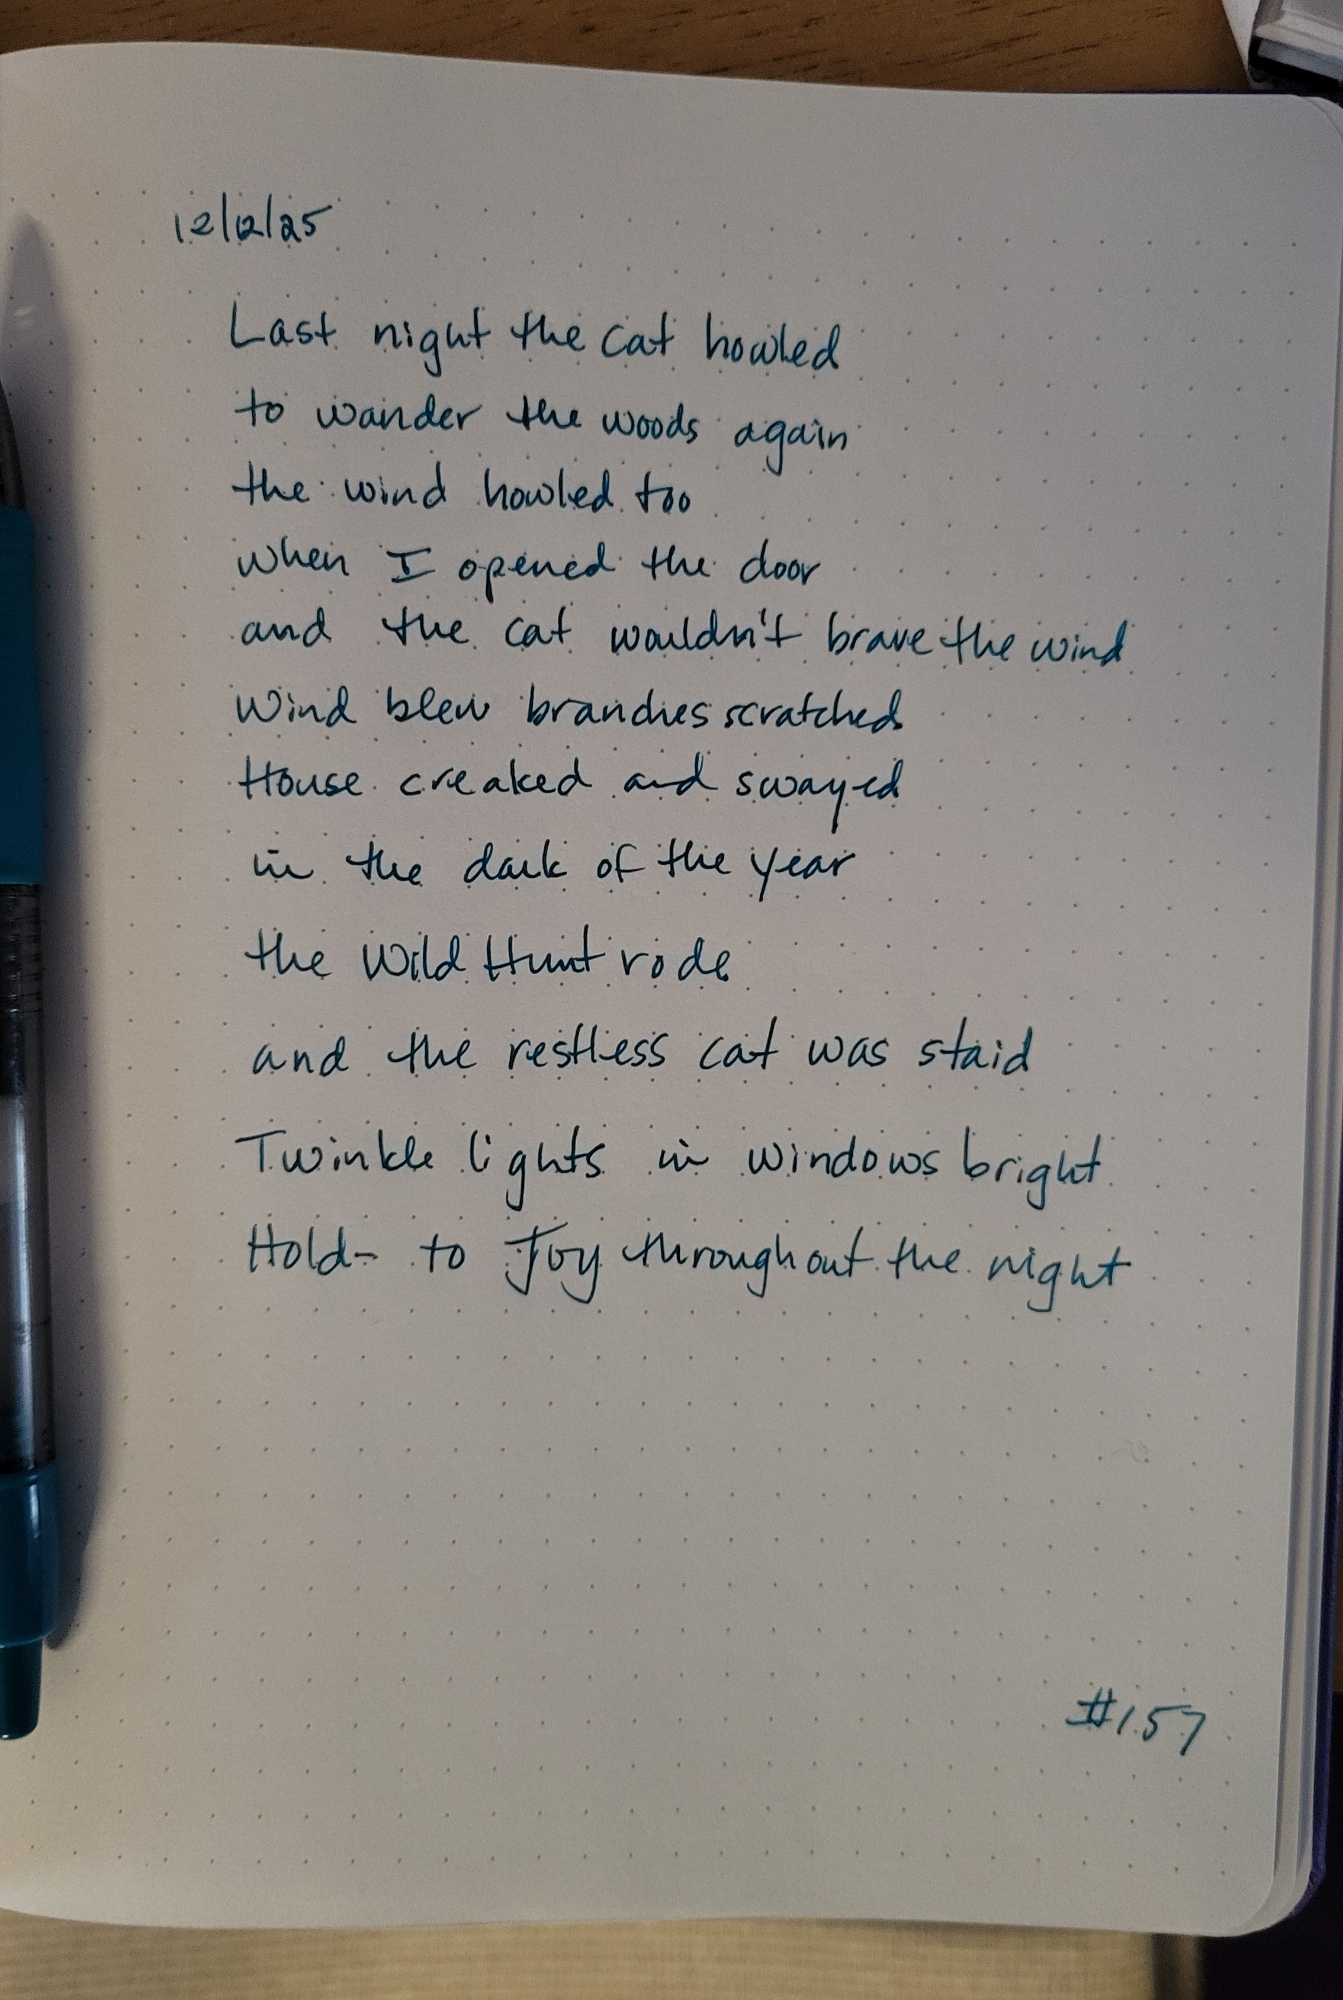 12/12/25
Last night the cat howled
to wander the woods again
the wind howled too
when I opened the door
and the cat wouldn't brave the wind
Wind blew branches scratched
House creaked and swayed
in the dark of the year
the Wild Hunt rode
and the restless cat was staid
Twinkle lights in windows bright
Hold- to Joy throughout the night
#157